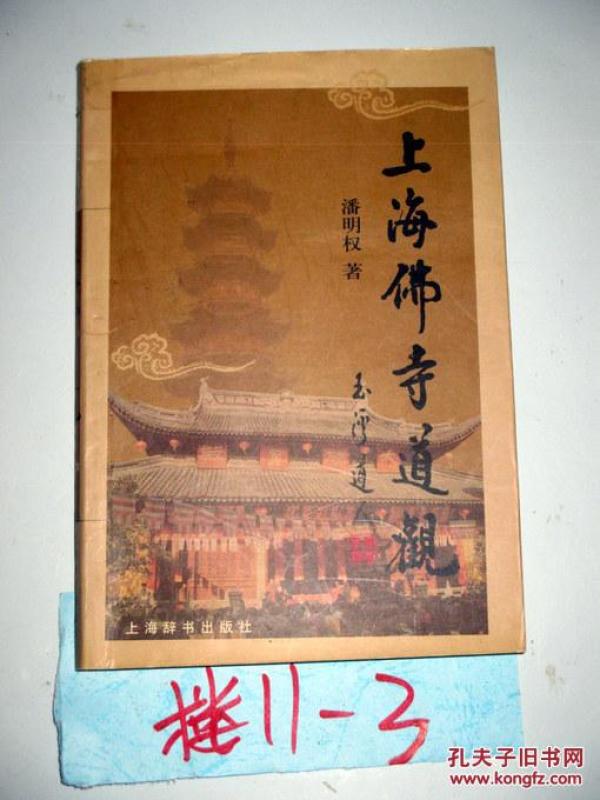 上海佛寺道觀
潘明权 著
玉淨道人
上海辞书出版社
11-3
孔夫子旧书网
www.kongfz.com